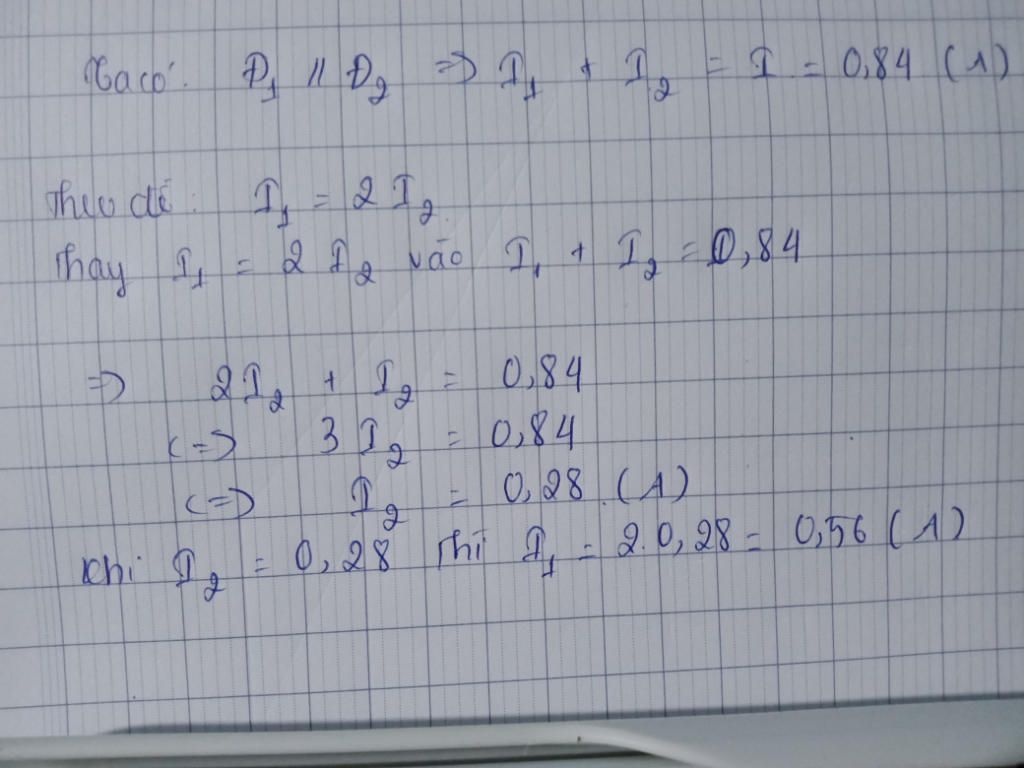 Ta có: Đ₁ // Đ₂ => I₁ + I₂ = I = 0,84 (A)
Theo đề: I₁ = 2 I₂
Thay I₁ = 2 I₂ vào I₁ + I₂ = 0,84
=> 2I₂ + I₂ = 0,84
(=) 3 I₂ = 0,84
(=) I₂ = 0,28 (A)
Khi I₂ = 0,28 thì I₁ = 2.0,28 = 0,56 (A)